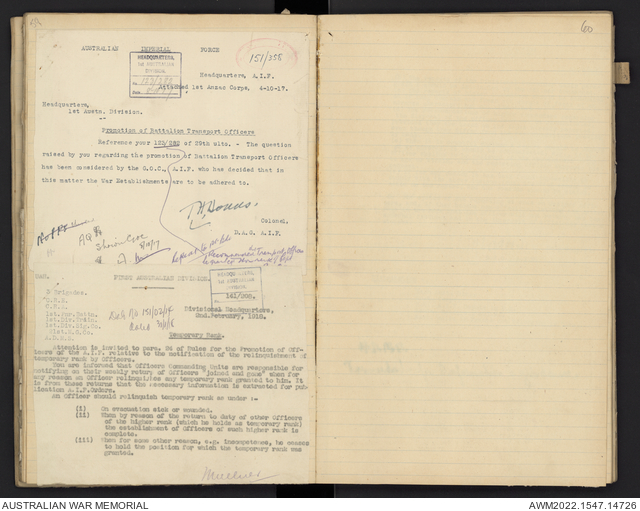 AUSTRALIAN IMPERIAL FORCE
HEADQUARTERS,
1st AUSTRALIAN
DIVISION.
151/358
Headquarters, A.I.F.
Attached 1st Anzac Corps. 4-10-17.
Headquarters,
1st Austn. Division.
Promotion of Battalion Transport Officers
Reference your 123/282 of 29th ulto. - The question
raised by you regarding the promotion of Battalion Transport Officers
has been considered by the G.O.C., A.I.F. who has decided that in
this matter the War Establishments are to be adhered to.
Colonel,
D.A.G. A.I.F.
AQ
FIRST AUSTRALIAN DIVISION.
HEADQUARTERS
1st AUSTRALIAN
DIVISION.
Divisional Headquarters,
2nd February, 1918.
3 Brigades.
Temporary Rank.
Attention is invited to para. 24 of Rules for the Promotion of Off-
icers of the A.I.F. relative to the notification of the relinquishment of
temporary rank by Officers.
You are informed that Officers Commanding Units are responsible for
notifying on their weekly return of Officers "joined and gone" when for
any reason an Officer relinquishes any temporary rank granted to him. It
is from these returns that the necessary information is extracted for pub-
lication A.I.F. Orders.
An Officer should relinquish temporary rank as under :-
(i) On evacuation sick or wounded.
(ii) When by reason of the return to duty of other Officers
of the higher rank (which he holds as temporary rank)
the establishment of Officers of such higher rank is
complete.
(iii) When for some other reason, e.g. incompetence, he ceases
to hold the position for which the temporary rank was
granted.
60
AUSTRALIAN WAR MEMORIAL
AWM2022.1547.14726